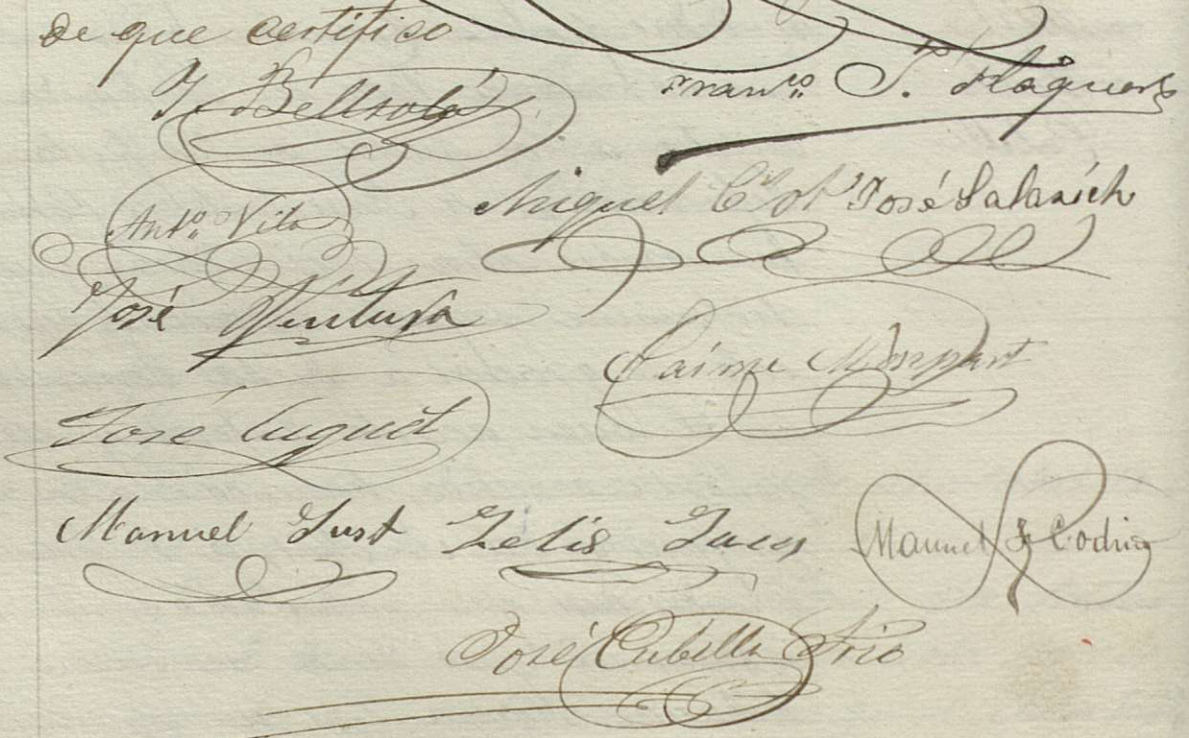 de que certifico
J. Bellsolá
Fran.co S. Flaquer
Ant.o Vila
Miguel Col
José Salarich
José Ventura
Jaime Mompart
José Cuquet
Manuel Just
Manuel
José Cubella Srio